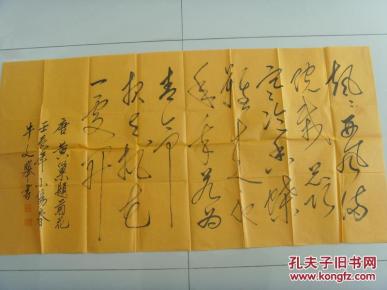 飒〻西风满
院栽蕊
寒冷香蝶
难来他
年我若为
青帝
报与桃花
一处开
唐黄巢题菊花
壬辰年小阳春
牛文
书
孔夫子旧书网